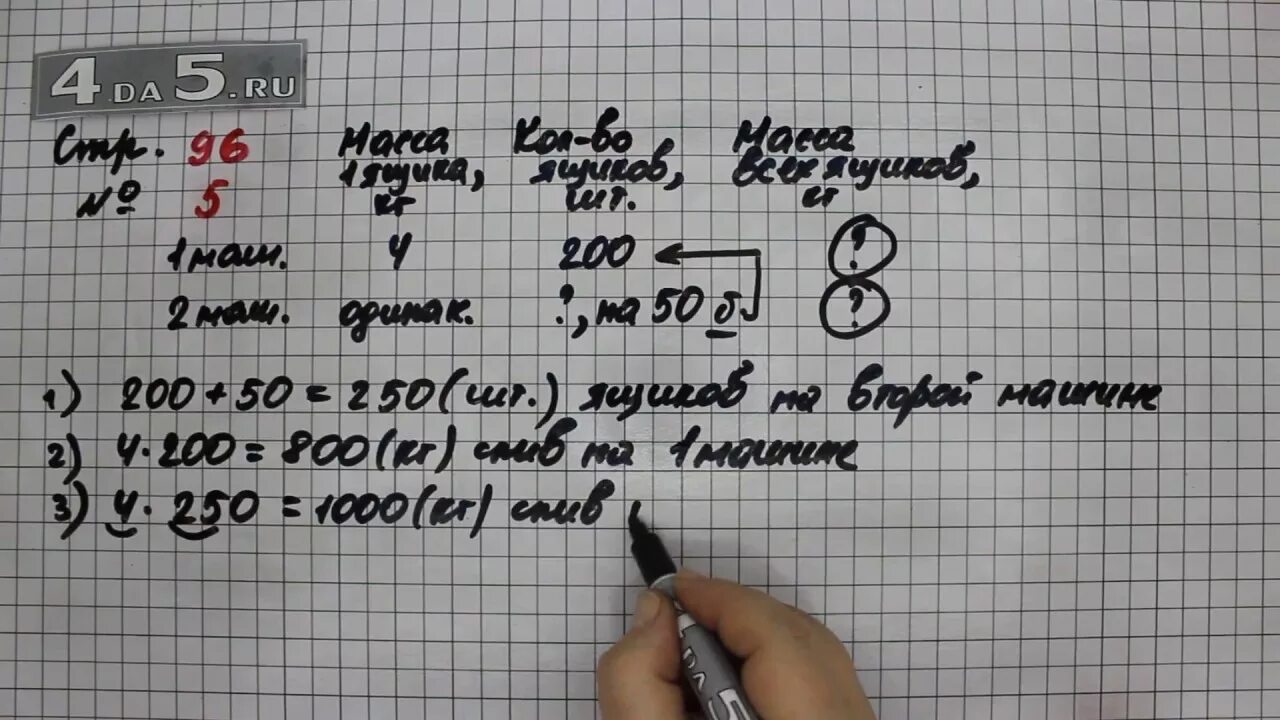 4DA5.RU
Стр. 96
№ 5
Масса 1 ящика, кг
Кол-во ящиков, шт.
Масса всех ящиков, кг
1 маш. 4 200 ?
2 маш. одинак. ?, на 50 б ?
1) 200 + 50 = 250 (шт.) ящиков на второй машине
2) 4 · 200 = 800 (кг) слив на 1 машине
3) 4 · 250 = 1000 (кг) слив
4 DA 5